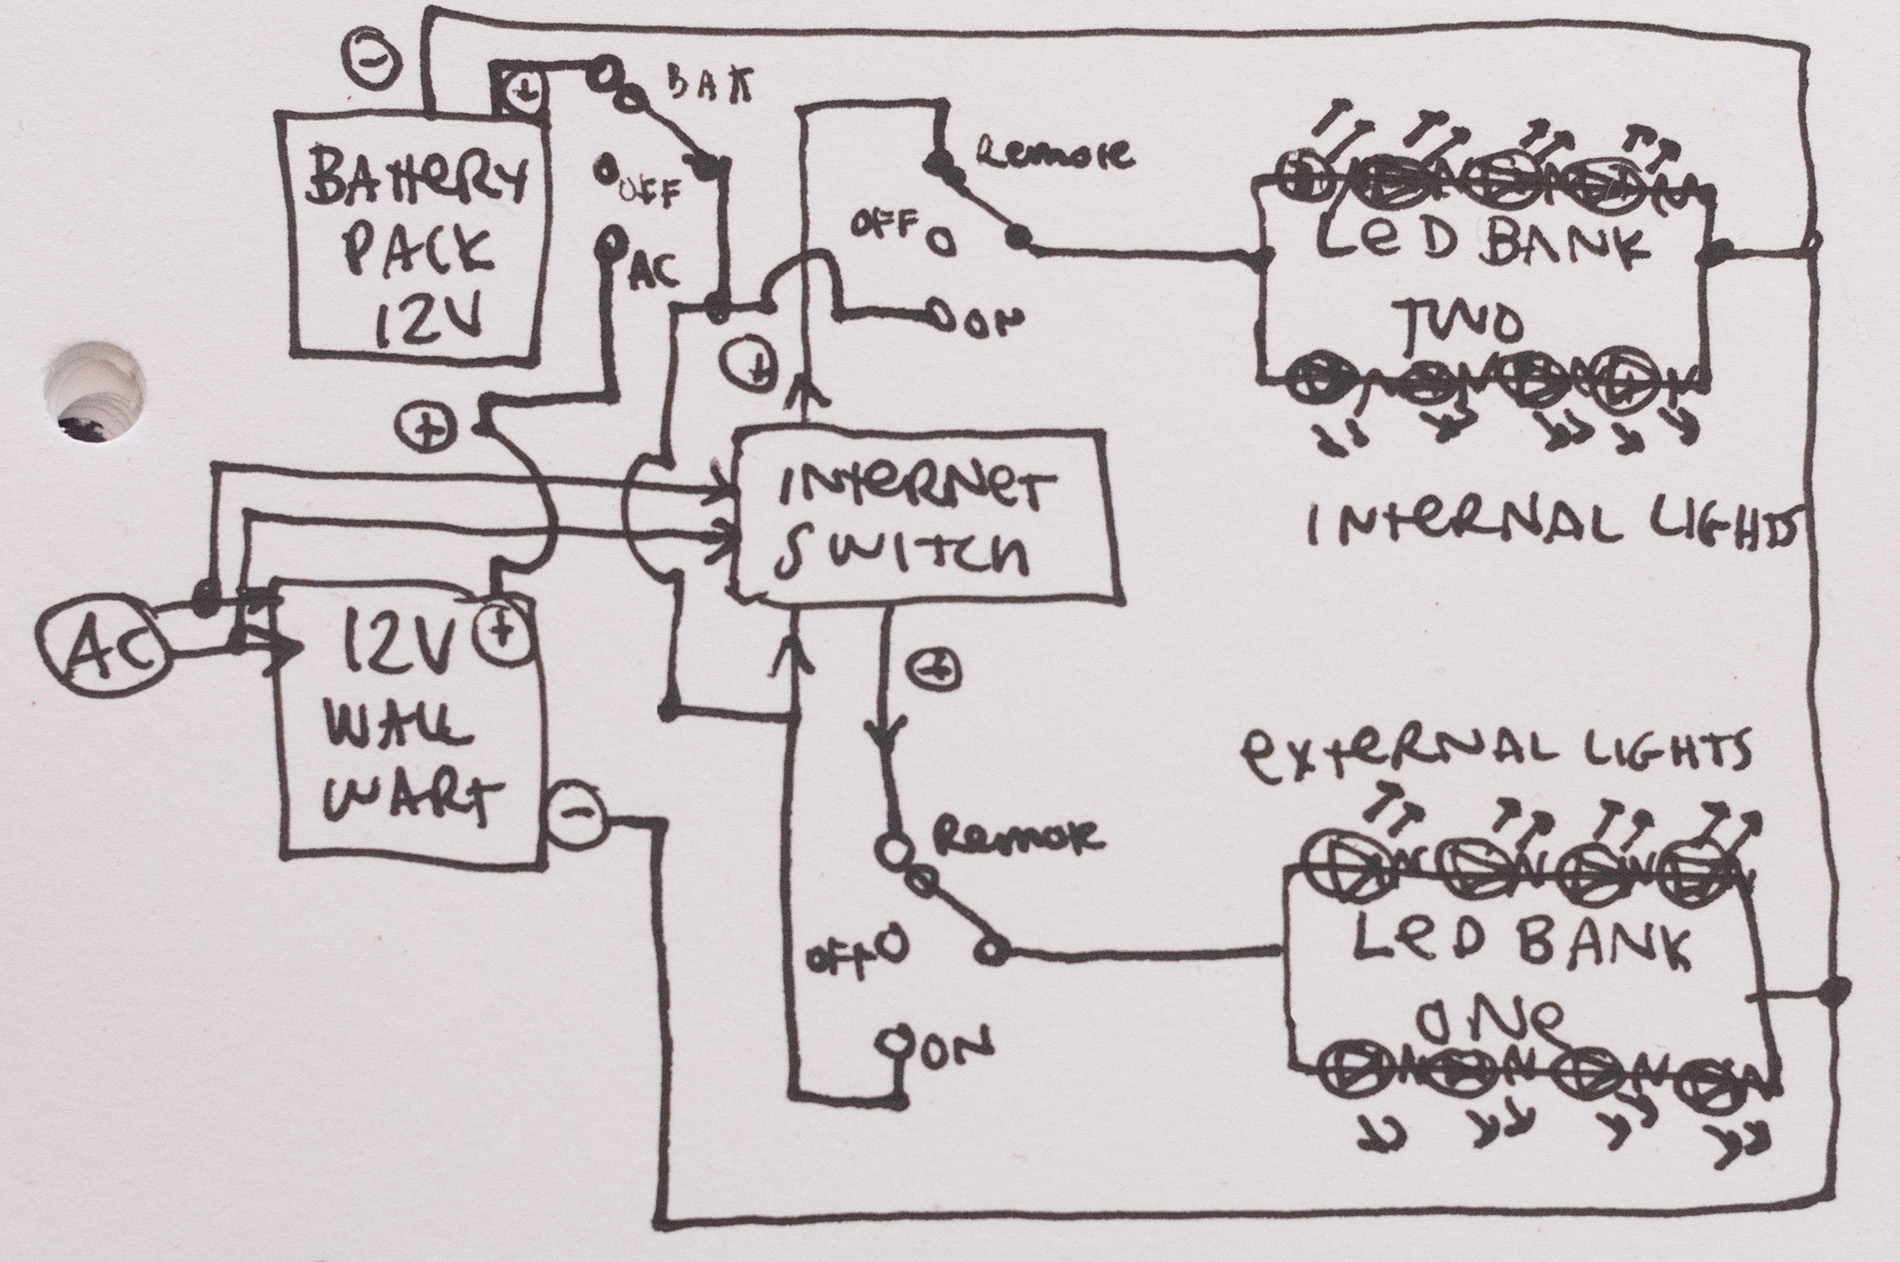 −
+
BAK
BATTERY
PACK
12V
OFF
AC
Remote
OFF
ON
LED BANK
TWO
+
+
INTERNET
SWITCH
INTERNAL LIGHTS
AC
12V +
WALL
WART
−
+
EXTERNAL LIGHTS
Remote
OFF
ON
LED BANK
ONE